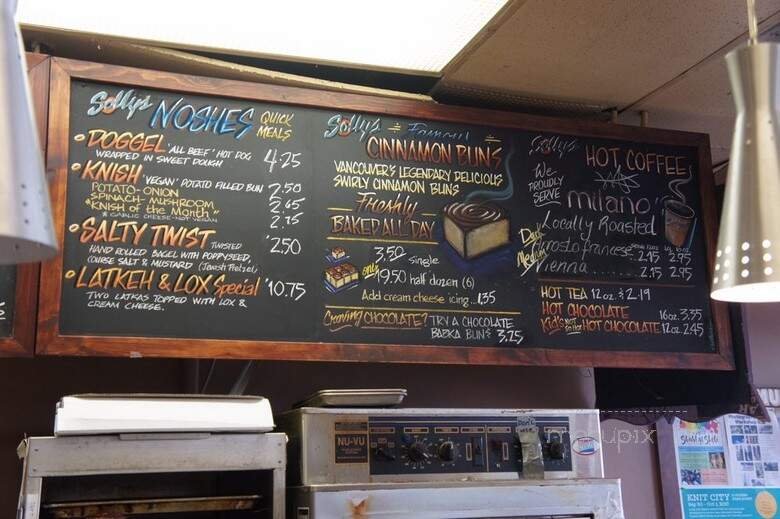 Solly's NOSHES QUICK MEALS
• DOGGEL "ALL BEEF" HOT DOG
WRAPPED IN SWEET DOUGH 4.25
• KNISH "VEGAN" POTATO FILLED BUN
POTATO-ONION 2.50
SPINACH-MUSHROOM 2.65
"KNISH OF THE MONTH"
* GARLIC CHEESE-NOT VEGAN 2.75
• SALTY TWIST TWISTED
HAND ROLLED BAGEL WITH POPPYSEED, 2.50
COURSE SALT & MUSTARD (Jewish Pretzel)
• LATKEH & LOX Special $10.75
TWO LATKAS TOPPED WITH LOX &
CREAM CHEESE.
Solly's Famous
CINNAMON BUNS
VANCOUVER'S LEGENDARY DELICIOUS
SWIRLY CINNAMON BUNS
Freshly
BAKED ALL DAY
3.50 single
only 19.50 half dozen (6)
Add cream cheese icing...1.35
Craving CHOCOLATE? TRY A CHOCOLATE
BABKA BUN $ 3.25
Solly's HOT, COFFEE
We
PROUDLY
SERVE
milano"
Locally Roasted
Dark
2.15 2.95
Medium
Vienna 2.15 2.95
HOT TEA 12oz. $ 2.19
HOT CHOCOLATE 16oz. 3.35
Kid's NOT SO HOT HOT CHOCOLATE 12oz 2.45
NU-VU
Don't
use
KNIT CITY